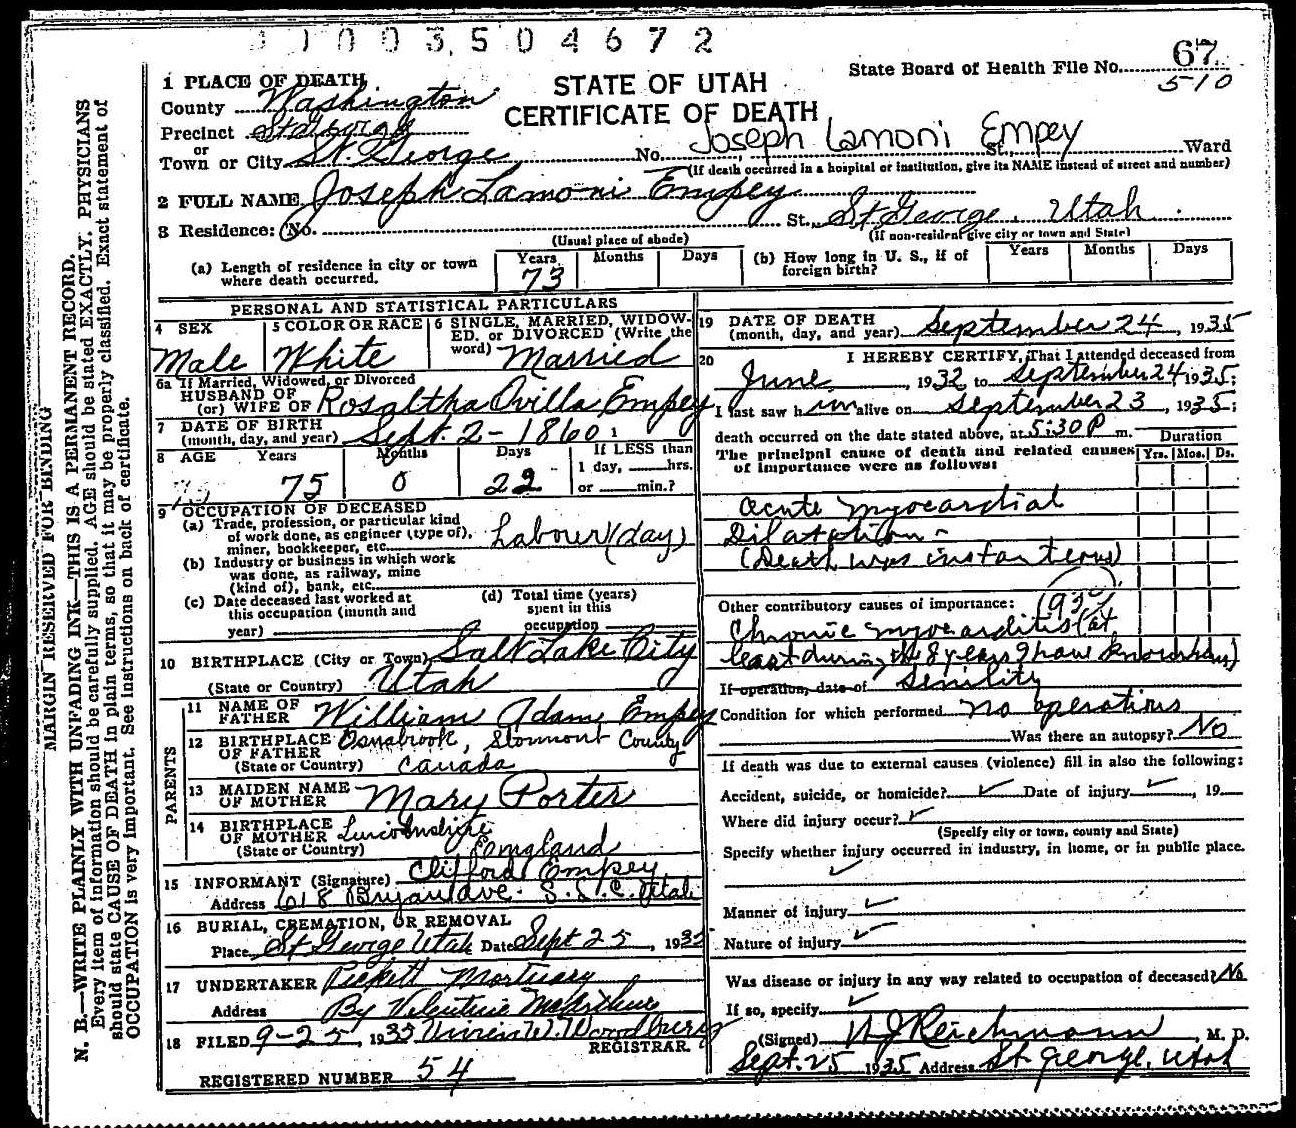 1003504672
State Board of Health File No. 67
510
STATE OF UTAH
CERTIFICATE OF DEATH
1 PLACE OF DEATH
County Washington
Precinct St George
or
Town or City St. George No. Joseph Lamoni Empey St. Ward
(If death occurred in a hospital or institution, give its NAME instead of street and number)
2 FULL NAME Joseph Lamoni Empey
3 Residence: No. St. St George, Utah
(Usual place of abode) (If non-resident give city or town and State)
(a) Length of residence in city or town where death occurred. Years 73 Months Days
(b) How long in U. S., if of foreign birth? Years Months Days
PERSONAL AND STATISTICAL PARTICULARS
4 SEX
Male
5 COLOR OR RACE
White
6 SINGLE, MARRIED, WIDOWED, or DIVORCED (Write the word) Married
6a If Married, Widowed, or Divorced
HUSBAND OF
(or) WIFE OF Rosaltha Ovilla Empey
7 DATE OF BIRTH
(month, day, and year) Sept. 2 - 1860
8 AGE Years 75 Months 0 Days 22
If LESS than
1 day, hrs.
or min.?
9 OCCUPATION OF DECEASED
(a) Trade, profession, or particular kind
of work done, as engineer (type of),
miner, bookkeeper, etc. Labour (day)
(b) Industry or business in which work
was done, as railway, mine
(kind of), bank, etc.
(c) Date deceased last worked at
this occupation (month and
year)
(d) Total time (years)
spent in this
occupation
10 BIRTHPLACE (City or Town) Salt Lake City
(State or Country) Utah
PARENTS
11 NAME OF
FATHER William Adams Empey
12 BIRTHPLACE
OF FATHER Osnabrook, Stormont County
(State or Country) Canada
13 MAIDEN NAME
OF MOTHER Mary Porter
14 BIRTHPLACE
OF MOTHER
(State or Country) England
15 INFORMANT (Signature) Clifford Empey
Address 618 Bryan Ave. S. L. C. Utah
16 BURIAL, CREMATION, OR REMOVAL
Place St George Utah Date Sept 25, 1935
17 UNDERTAKER Pickett Mortuary
Address By Valentine McArthur
18 FILED 9-25, 1935 Vivien W. Woodbury
REGISTRAR
REGISTERED NUMBER 54
19 DATE OF DEATH
(month, day, and year) September 24, 1935
20 I HEREBY CERTIFY, That I attended deceased from
June, 1932 to September 24 1935;
I last saw h im alive on September 23, 1935;
death occurred on the date stated above, at 5:30 P m.
The principal cause of death and related causes
of importance were as follows:
Duration
Yrs. Mos. Ds.
Acute myocardial
Dilatation -
(Death was instantens)
Other contributory causes of importance:
Chronic myocarditis (at
least during the 8 years I have known him)
Senility
If operation, date of
Condition for which performed no operations
Was there an autopsy? No
If death was due to external causes (violence) fill in also the following:
Accident, suicide, or homicide? ✓ Date of injury ✓, 19
Where did injury occur? ✓
(Specify city or town, county and State)
Specify whether injury occurred in industry, in home, or in public place.
✓
Manner of injury ✓
Nature of injury ✓
Was disease or injury in any way related to occupation of deceased? No
If so, specify ✓
(Signed) Reichmann, M. D.
Sept. 25 1935 Address St George, Utah
MARGIN RESERVED FOR BINDING
N. B.—WRITE PLAINLY WITH UNFADING INK—THIS IS A PERMANENT RECORD.
Every item of information should be carefully supplied. AGE should be stated EXACTLY. PHYSICIANS
should state CAUSE OF DEATH in plain terms, so that it may be properly classified. Exact statement of
OCCUPATION is very important. See instructions on back of certificate.